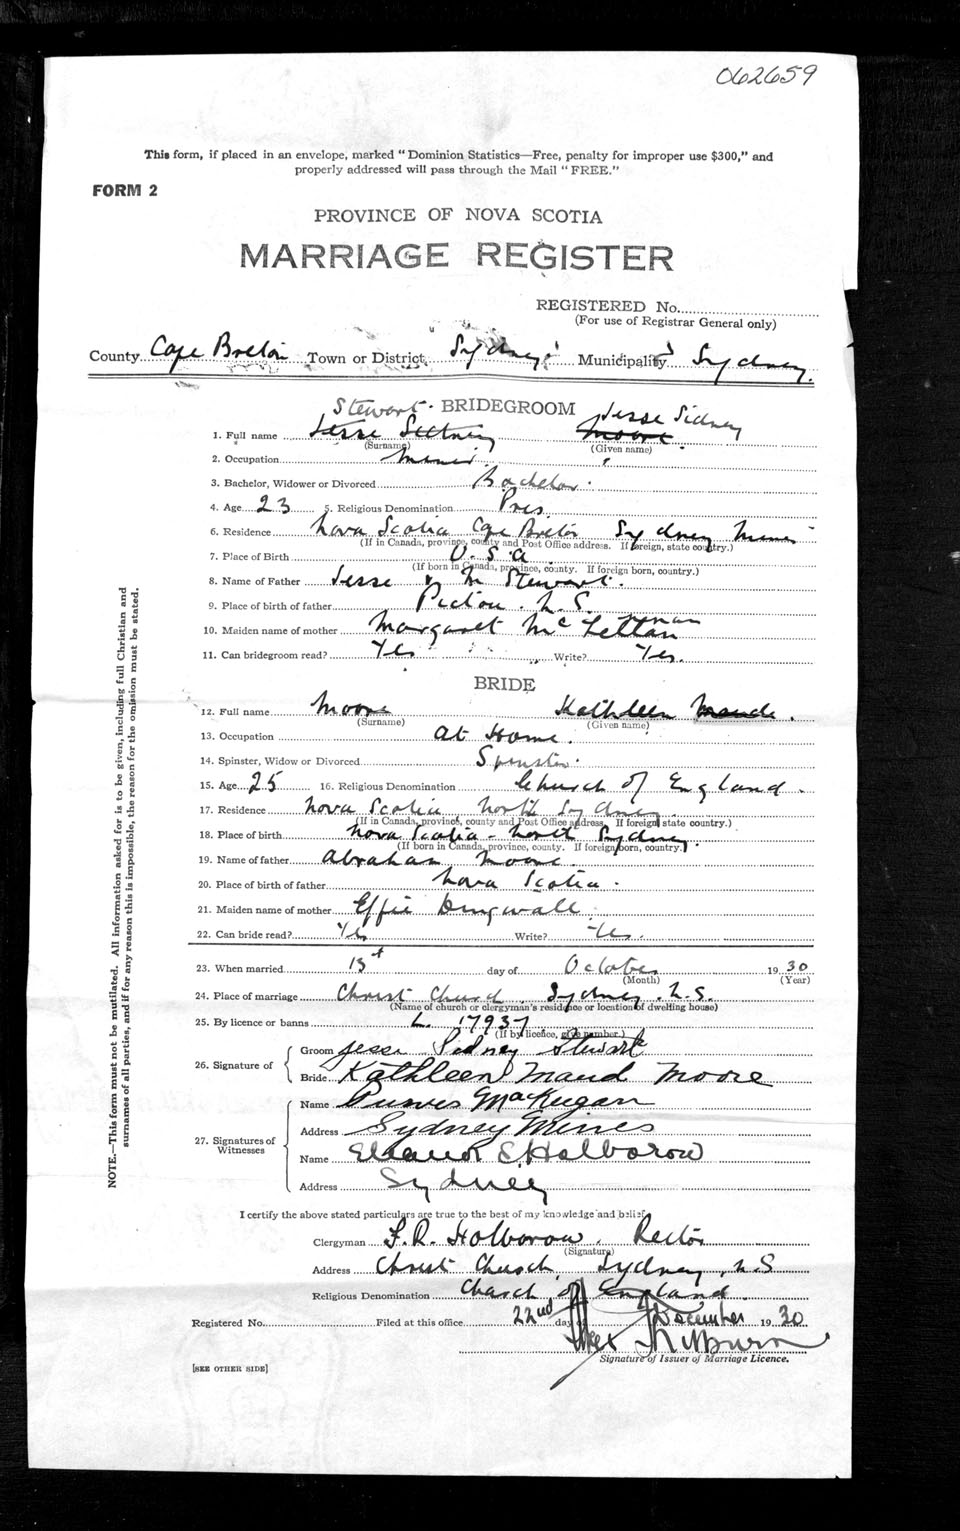 062659
This form, if placed in an envelope, marked "Dominion Statistics—Free, penalty for improper use $300," and
properly addressed will pass through the Mail "FREE."
FORM 2
PROVINCE OF NOVA SCOTIA
MARRIAGE REGISTER
REGISTERED No.
(For use of Registrar General only)
County Cape Breton Town or District Sydney Municipality Sydney.
Stewart. BRIDEGROOM Jesse Sidney
1. Full name Jesse Sidney Moore
(Surname) (Given name)
2. Occupation Miner
3. Bachelor, Widower or Divorced Bachelor.
4. Age 23 5. Religious Denomination Pres.
6. Residence Nova Scotia Cape Breton Sydney Mines
(If in Canada, province, county and Post Office address. If foreign, state country.)
7. Place of Birth U.S.A
(If born in Canada, province, county. If foreign born, country.)
8. Name of Father Jesse M Stewart.
9. Place of birth of father Pictou. N.S.
10. Maiden name of mother Margaret Mc
11. Can bridegroom read? Yes Write? Yes.
BRIDE
12. Full name Moore Kathleen Maude.
(Surname) (Given name)
13. Occupation At Home.
14. Spinster, Widow or Divorced Spinster.
15. Age 25 16. Religious Denomination Church of England.
17. Residence Nova Scotia North Sydney
(If in Canada, province, county and Post Office address. If foreign state country.)
18. Place of birth Nova Scotia - North Sydney.
(If born in Canada, province, county. If foreign born, country.)
19. Name of father Abraham Moore.
20. Place of birth of father Nova Scotia.
21. Maiden name of mother Effie Dingwall.
22. Can bride read? Yes Write? Yes.
23. When married day of October 1930
(Month) (Year)
24. Place of marriage Christ Church. Sydney. N.S.
(Name of church or clergyman's residence or location of dwelling house)
25. By licence or banns L. 17937
(If by licence, give number.)
26. Signature of
Groom Jesse Sidney Stewart
Bride Kathleen Maud Moore
27. Signatures of
Witnesses
Name Purves MacKeigan
Address Sydney Mines
Name Eleanor E. Holborow
Address Sydney
I certify the above stated particulars are true to the best of my knowledge and belief.
Clergyman F.R. Holborow, Rector
(Signature)
Address Christ Church, Sydney, N.S
Religious Denomination Church of England.
Registered No. Filed at this office 22nd day of December 1930
Signature of Issuer of Marriage Licence.
[SEE OTHER SIDE]
NOTE.—This form must not be mutilated. All information asked for is to be given, including full Christian and
surnames of all parties, and if for any reason this is impossible, the reason for the omission must be stated.